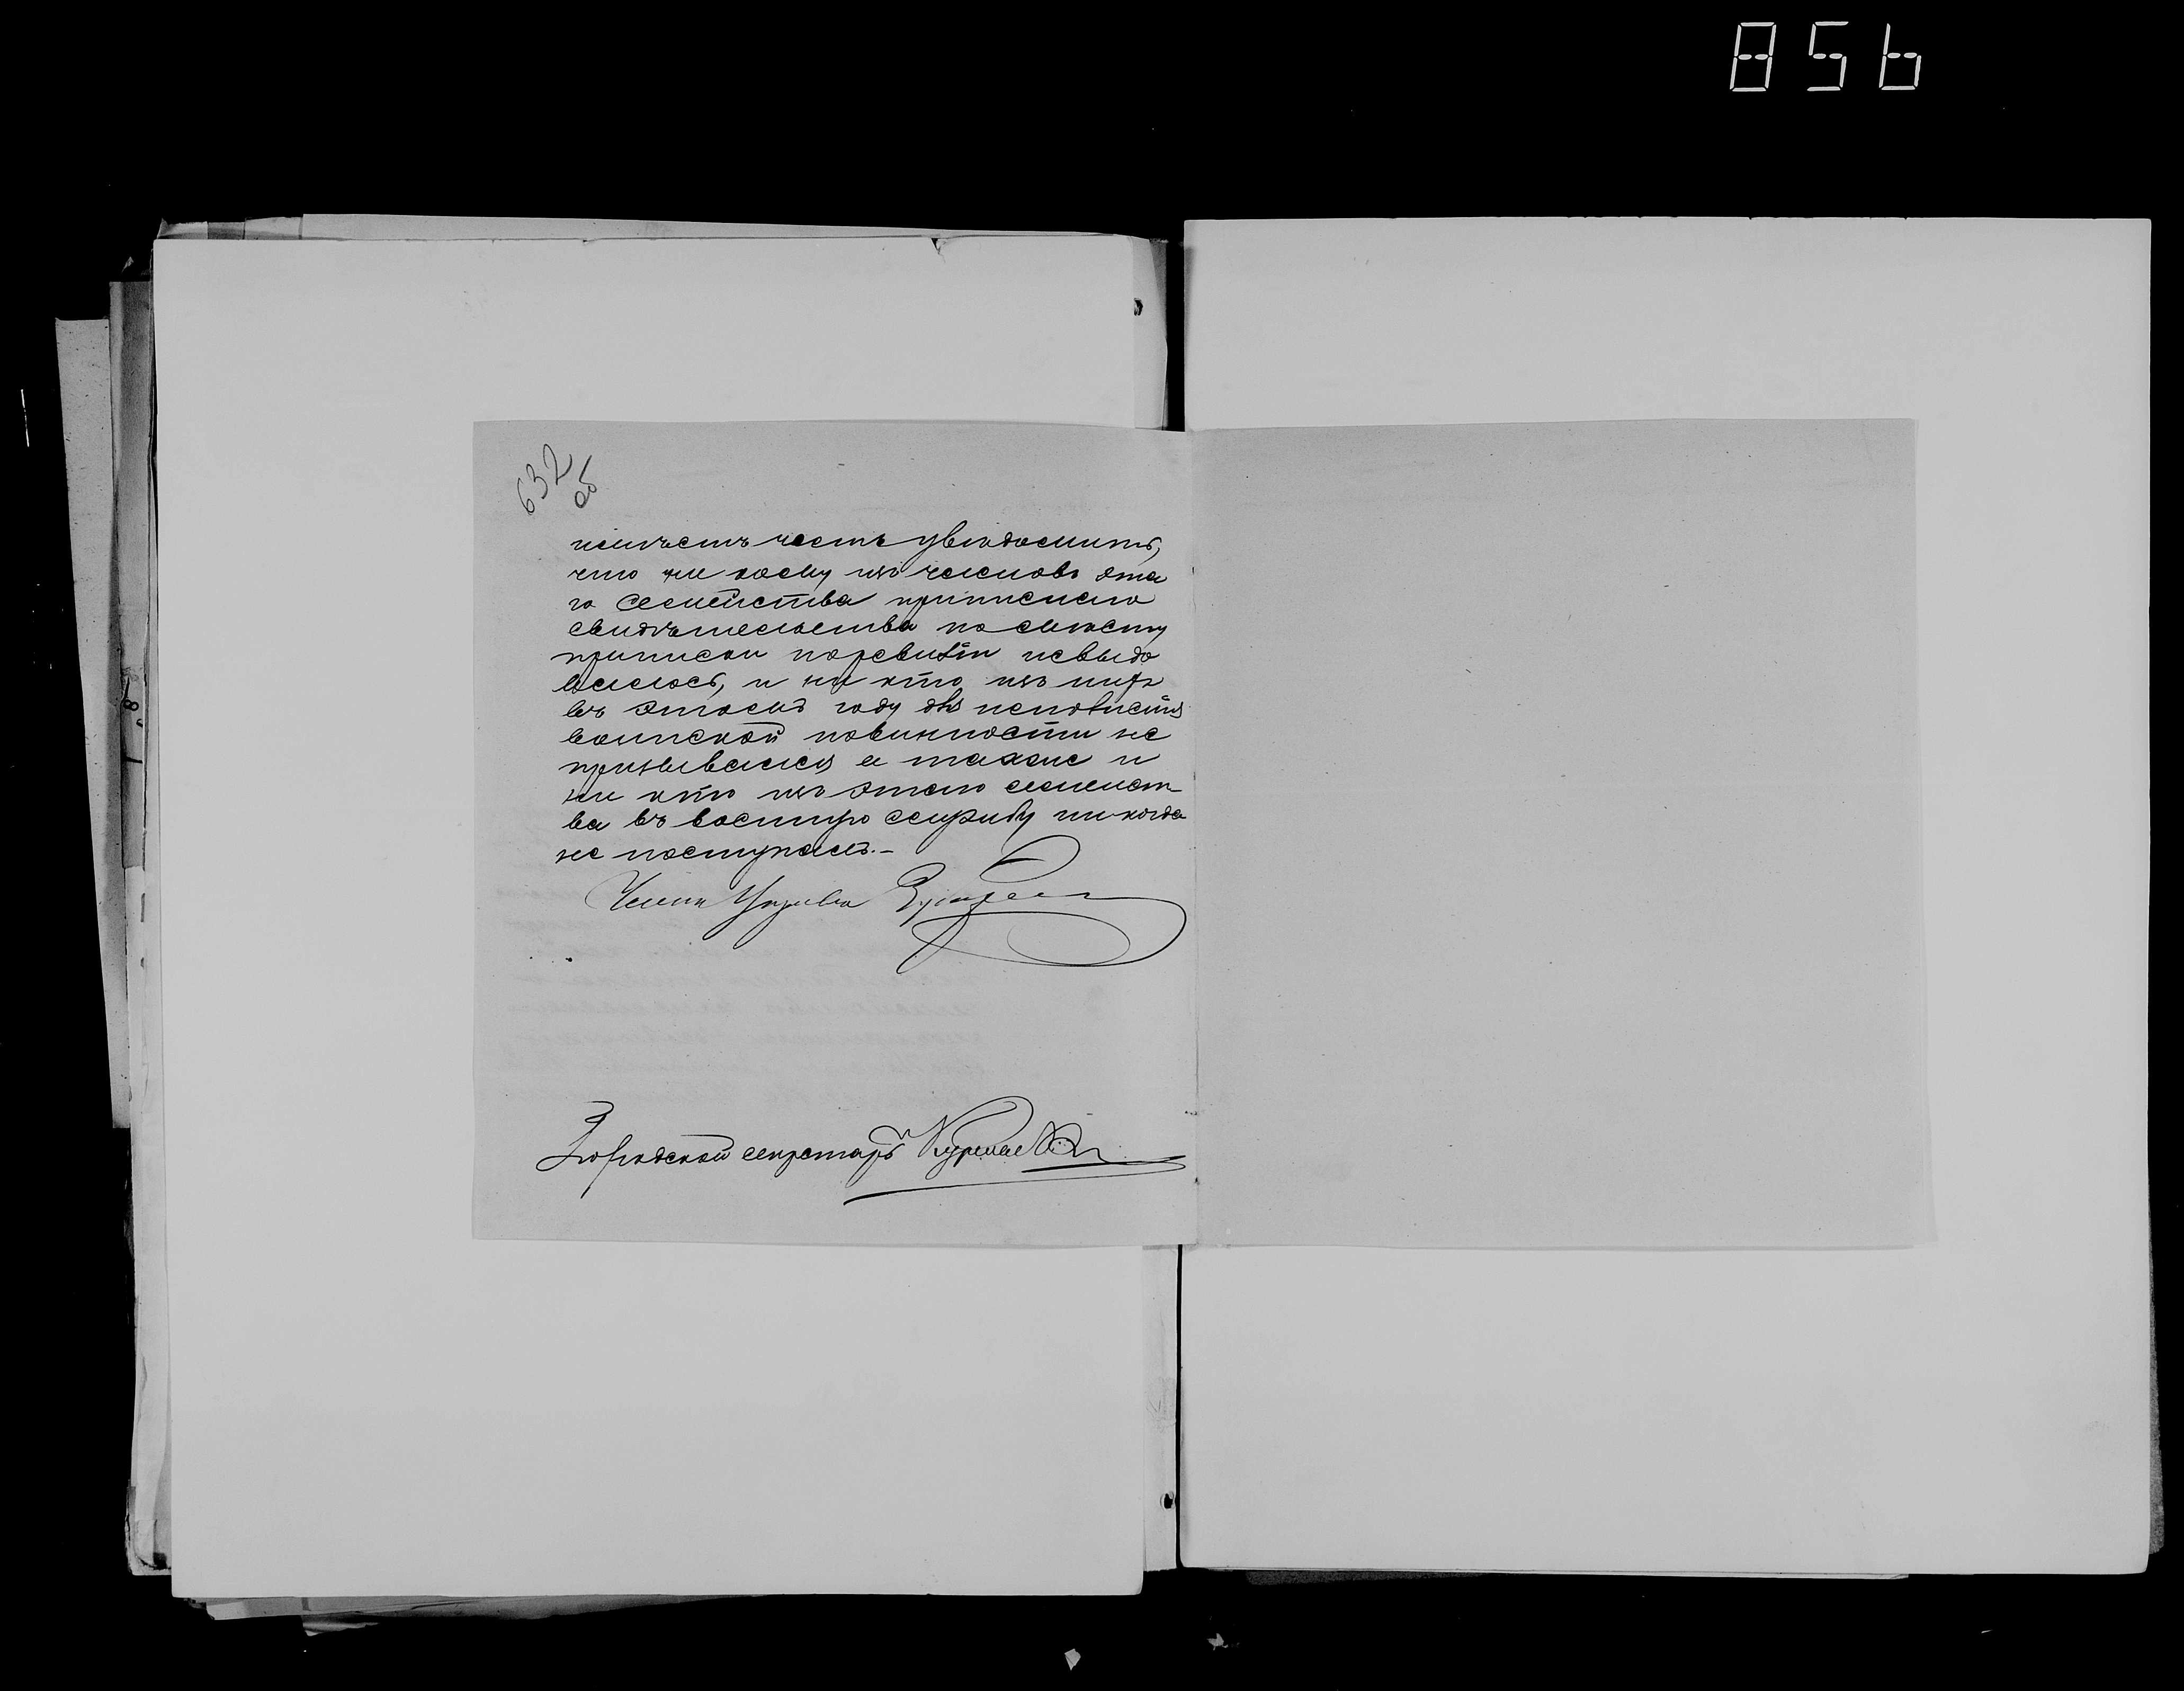 856
632
об
имѣетъ честь увѣдомить,
что ни кому изъ членовъ эта
го семейства приписного
свидѣтельства по месту
приписки по ревизiи невыдо
валось, и ни кто изъ нихъ
въ этомъ году для исполненiя
воинской повинности не
призывался а также и
ни кто изъ этого семейст-
ва въ военную службу ни когда
не поступалъ.-
Членъ Управы
Городской секретарь